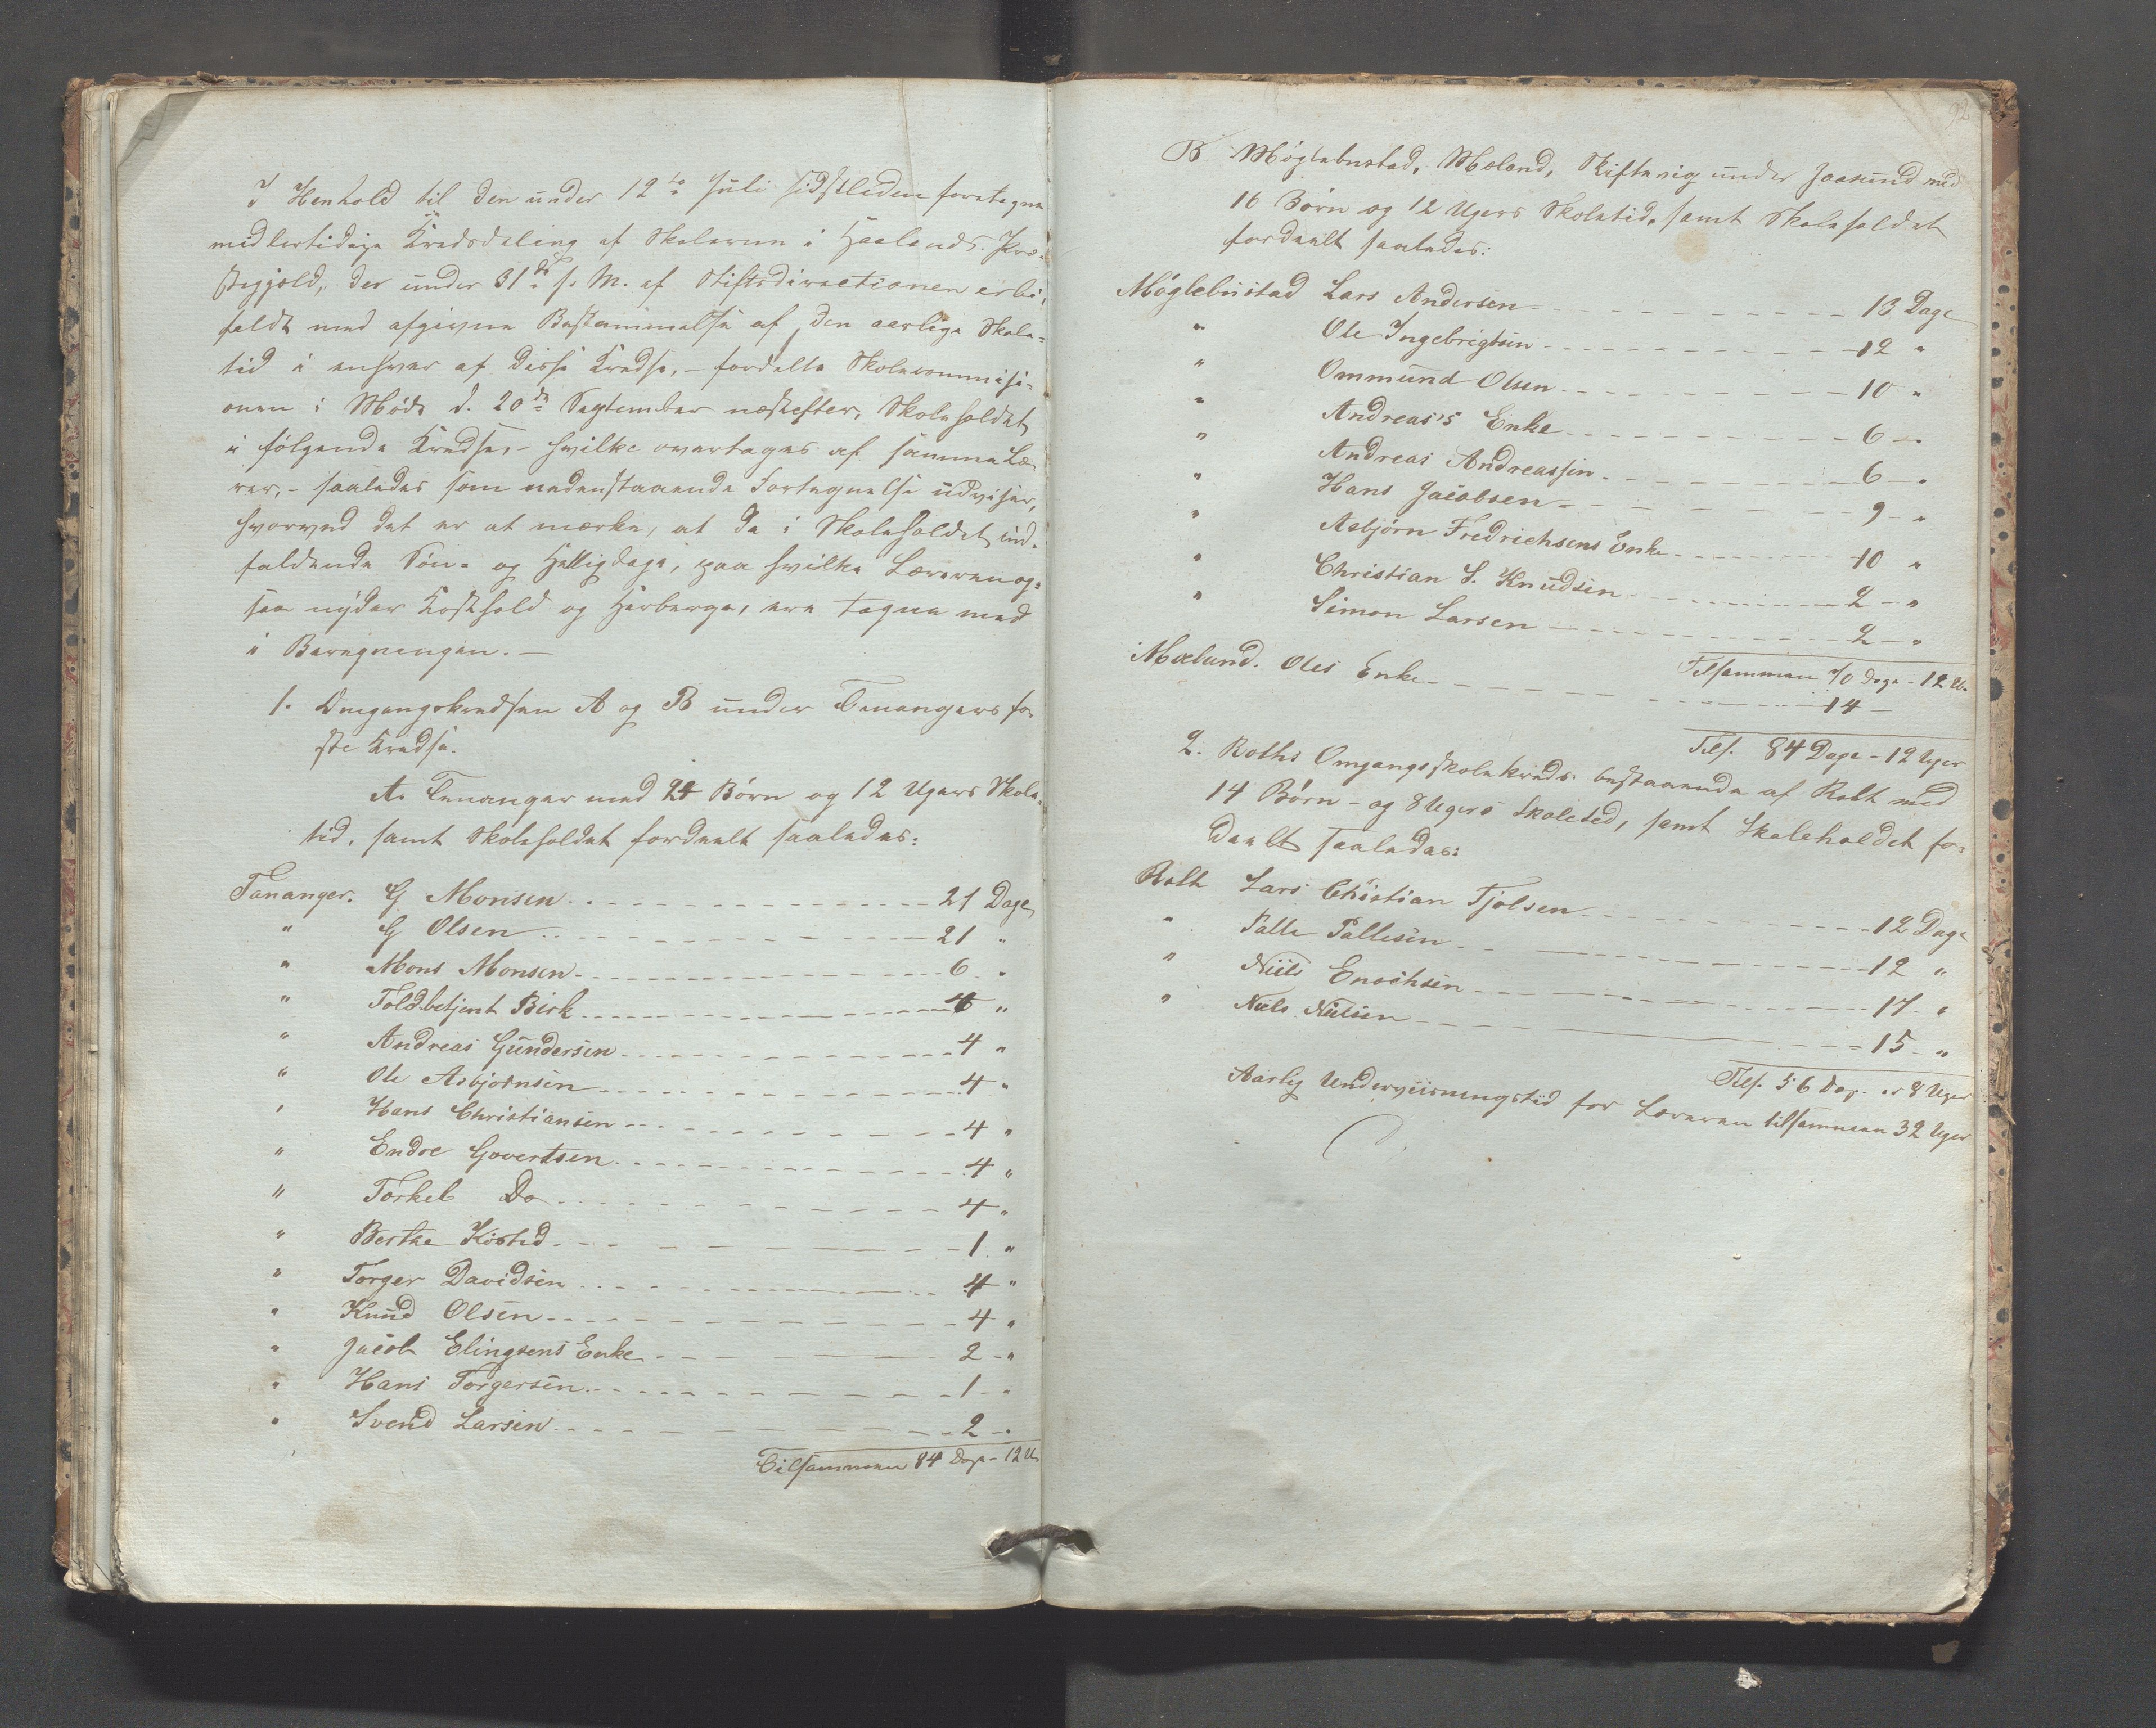 I Henhold til den under 12te Juli sidstleden foretagne
midlertidige Kredsdeling af Skolerne i Haalands Præ-
stegjeld, der under 31te s. M. af Stiftsdirectionen er bi-
faldt med afgivne Bestemmelse af den aarlige Skole-
tid i enhver af disse Kredse, - fordelte Skolecommisi-
onen i Møde d. 20de September næstefter, Skoleholdet
i følgende Kredse, - hvilke overtages af samme Læ-
rer, - saaledes som nedenstaaende Fortegnelse udviser,
hvorved det er at mærke, at de i Skoleholdet ind-
faldende Søn- og Helligdage, paa hvilke Læreren og-
saa nyder Kosthold og Herberge, ere tagne med
i Beregningen. -
1. Omgangskredsen A og B under Tenangers før-
ste Kredse.
A. Tenanger med 24 Børn og 12 Ugers Skole-
tid, samt Skoleholdet fordeelt saaledes:
Tananger. G Monsen 21 Dage
" G Olsen 21 "
" Mons Monsen 6 "
" Toldbetjent Birk "
" Andreas Gundersen 4 "
" Ole Asbjørnsen 4 "
" Hans Christiansen 4 "
" Endre Govertsen 4 "
" Torkel Do 4 "
" Berthe Kösted 1 "
" Torger Davidsen 4 "
" Knud Olsen 4 "
" Jacob Elingsens Enke 2 "
" Hans Torgersen 1 "
" Svend Larsen 2 "
Tilsammen 84 Dage - 12 U.
92
B. Møglebustad, Meland, Kiftevig under Jaasund med
16 Børn og 12 Ugers Skoletid, samt Skoleholdet
fordeelt saaledes:
Møglebustad Lars Andersen 13 Dage
" Ole Ingebrigtsen 12 "
" Ommund Olsen 10 "
" Andreas's Enke 6 "
" Andreas Andreassen 6 "
" Hans Jacobsen 9 "
" Asbjörn Fredrichsens Enke 10 "
" Christian S. Knudsen 2 "
" Simon Larsen 2 "
Tilsammen 70 Dage - 12 U.
Mæland. Oles Enke 14
Tils. 84 Dage - 12 Uger
2. Roths Omgangsskolekreds bestaaende af Roth med
14 Børn - og 8 Ugers Skoletid, samt Skoleholdet for-
deelt saaledes:
Roth Lars Christian Tjølsen 12 Dage
" Palle Pallesen 12 "
" Niels Enochsen 17 "
" Niels Nielsen 15 "
Tils. 56 Dag. er 8 Uger
Aarlig Underviisningstid for Læreren tilsammen 32 Uger